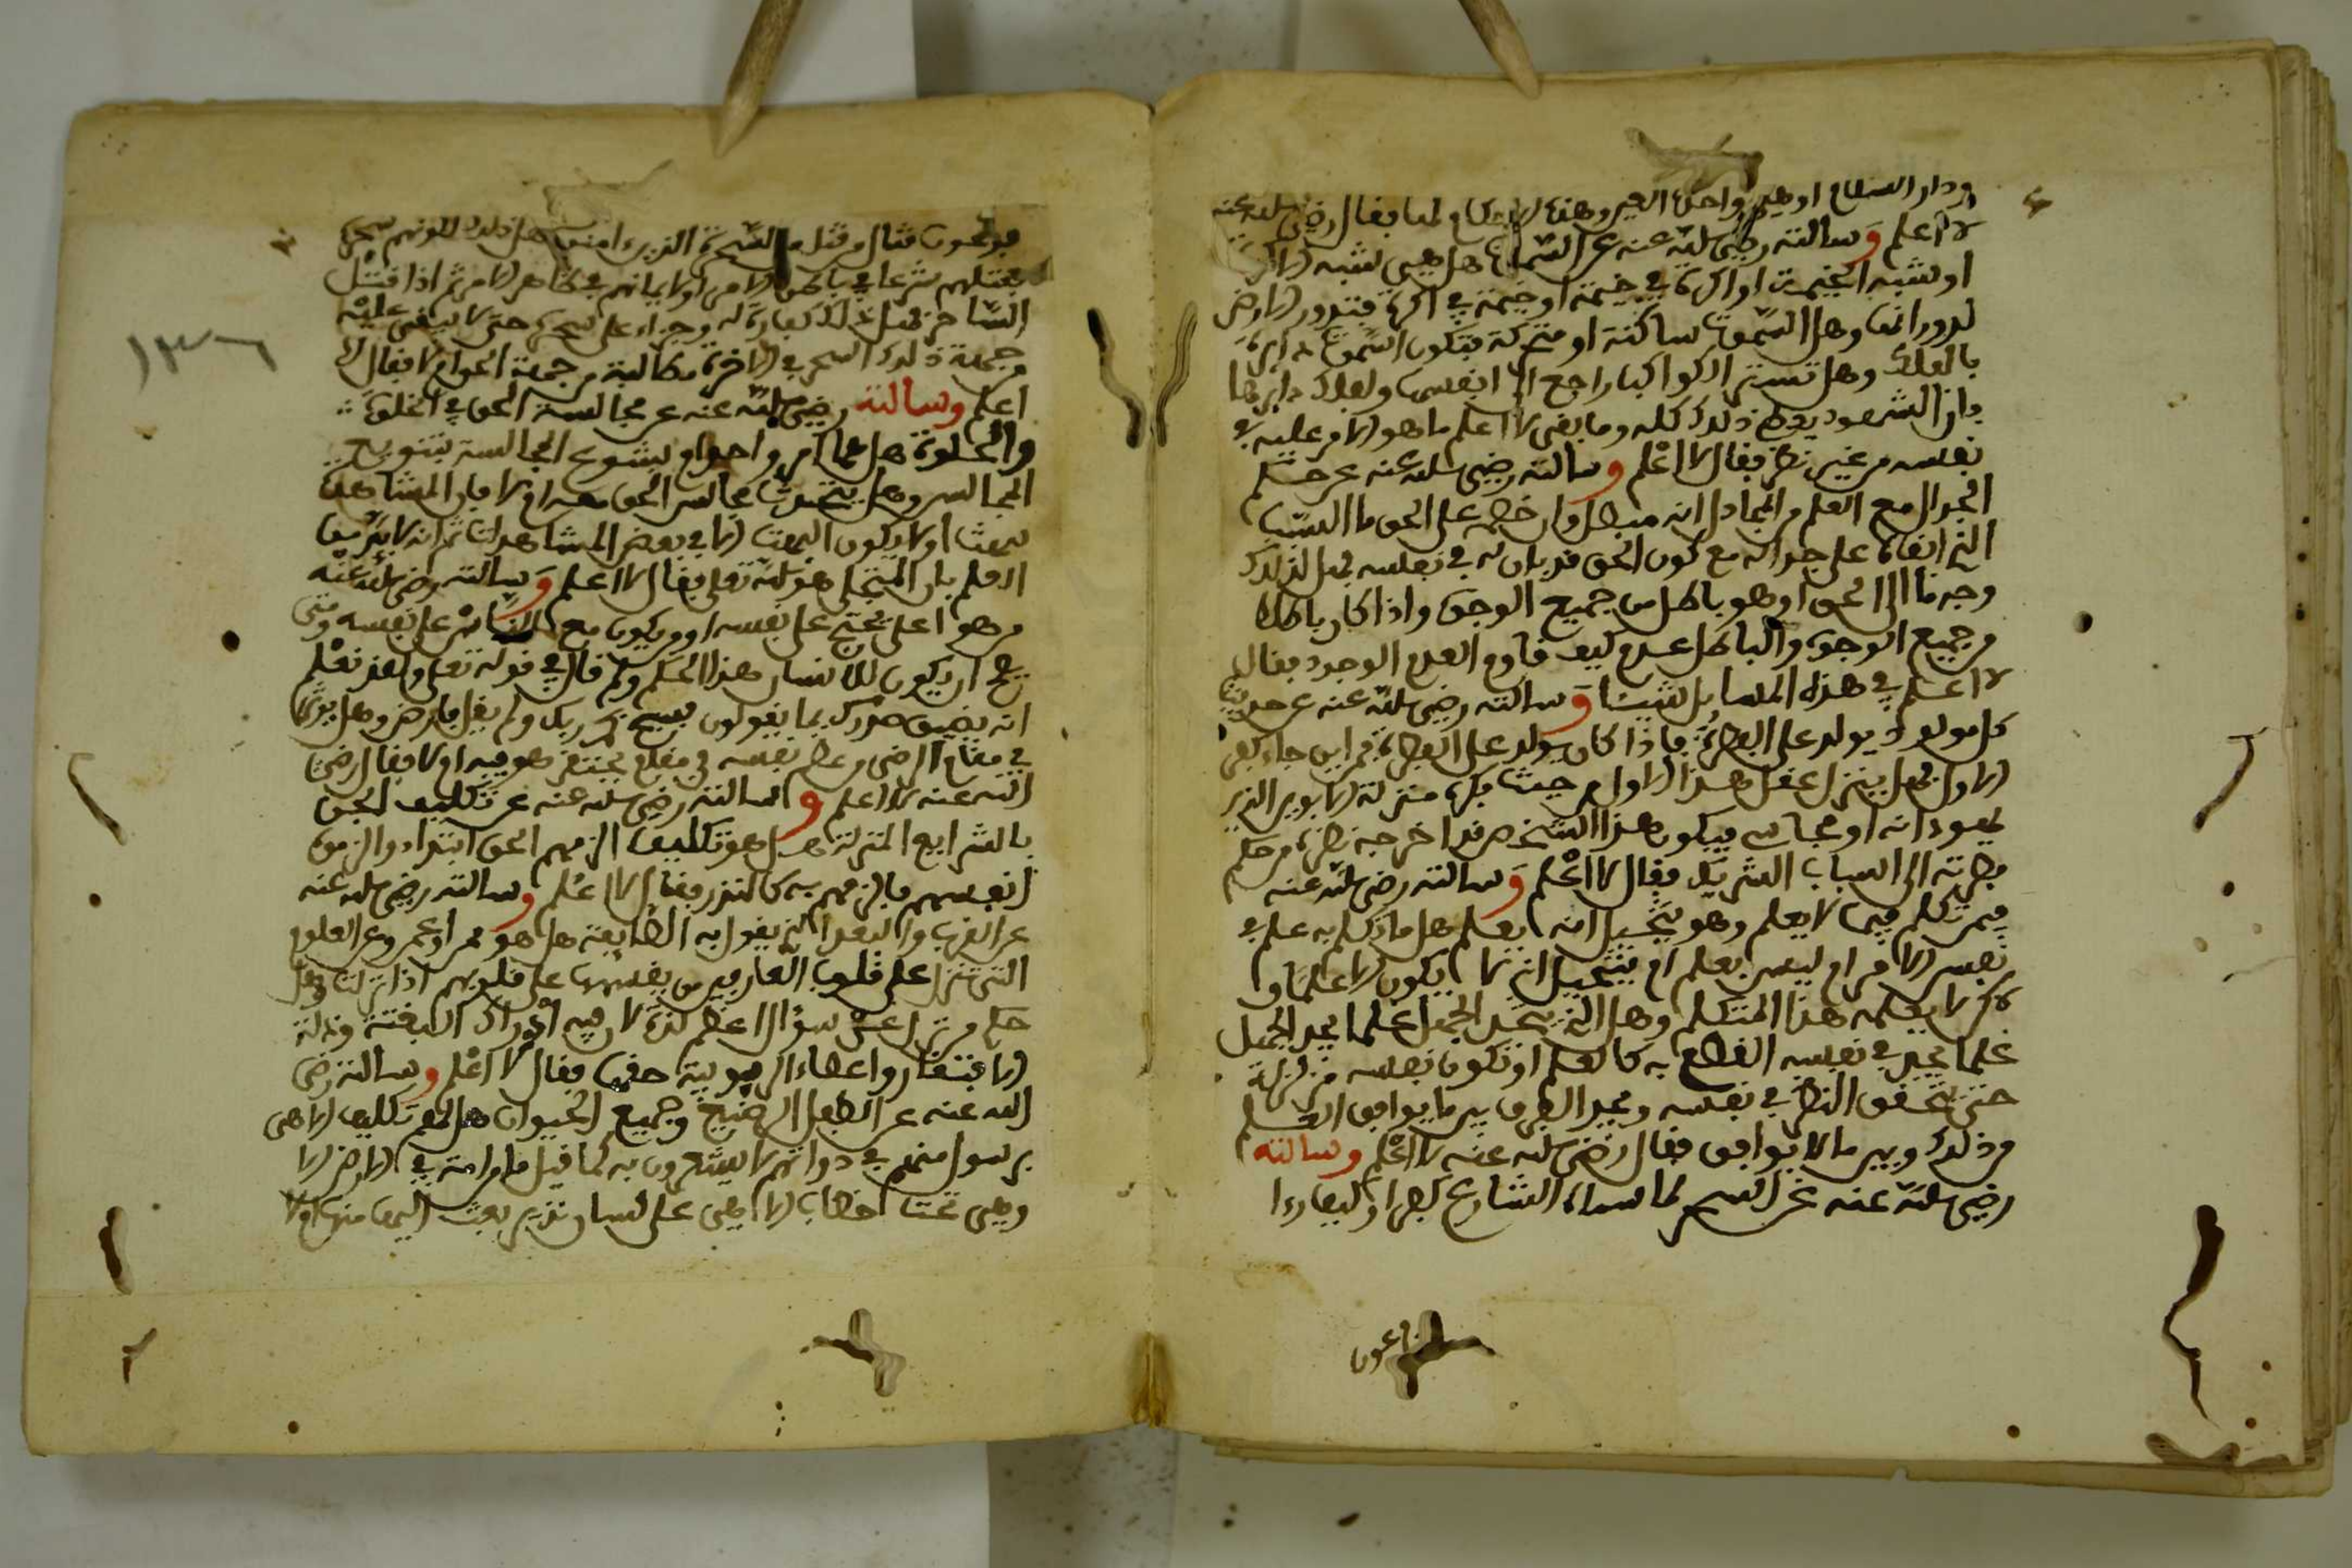 ودار السلام او هي واحدة العين وهذه الاحكام لها فقال رضي الله عنه
لا اعلم وسالته رضي الله عنه عن السموات هل هي شبه الاكر
او شبه الخيمة او اكرة في خيمة او خيمة في اكرة فتدور الارض
لدورانها وهل السموات ساكنة او متحركة فتكون السموات دايرة
بالفلك وهل تستر الكواكب راجع الى انفسها ولفلك دايرها
فان الشهود يعطي ذلك كله وما بقي الا اعلم ما هو الامر عليه في
نفسه من غير نظر فقال لا اعلم وسالته رضي الله عنه عن حكم
الجدال مع العلم من المجادل انه مبطل وان خصمه على الحق ما السبب
الذي ابقاه على جداله مع كون الحق قد بان له في نفسه فهل لذلك
وجه ما الى الحق او هو باطل من جميع الوجوه واذا كان باطلا
من جميع الوجوه والباطل عدم كيف قاوم العدم الوجود فقال لي
لا اعلم في هذه المسايل شيئا وسالته رضي الله عنه عن حديث
كل مولود يولد على الفطرة فاذا كان يولد على الفطرة فمن اين جاء كفر
الاول فهل ينزل عقل هذا الاول من حيث فكره منزلة الابوين الذين
يهودانه او مجسانه فيكون هذا الشخص قد اخرجه نظره من حكم
فطرته الى اسباب الشريك فقال لا اعلم وسالته رضي الله عنه
فيمن تكلم فيما لا يعلم وهو يتخيل انه يعلم هل ما تكلم به علم في
نفس الامر او ليس بعلم ام يتخيل انه لا يكون الا علما او
لاكن لا يعلمه هذا المتكلم وهل الذي يجد الجهل علما يجد الجهل
علما يجد في نفسه القطع به كالعلم او تكون نفسه متزلزلة
حتى يحقق النظر في نفسه ويجد الفرق بين ما يوافق العلم
من ذلك وبين ما لا يوافق فقال رضي الله عنه لا اعلم وسالته
رضي الله عنه عن السحر لما سماه الشارع كفرا وليعاردا
فرعون
فرعون فقال من قتل من السحرة الذين امنوا هل ذلك لكونهم سحرة
فقتلهم شرعا في باطن الامر او لايمانهم في ظاهر الامر ثم اذا قتل
الساحر فهل ذلك كفارة له وجزاء على سحره حتى لا يبقى عليه
من جهة ذلك السحر في الاخرة مطالبة من جهة الحق ام لا فقال لا
اعلم وسالته رضي الله عنه عن مجالسة الحق في الخلق
والخلوة هل هما امر واحد او يتنوع المجالسة بتنويع
المجالس وهل يتحدث مجالس الحق معه ام لا فان المشاهدة
للبهت او لا يكون البهت الا في بعض المشاهدات ثم انه لا بد من
العلم بان المتجلي هو الله تعلى فقال لا اعلم وسالته رضي الله عنه
من هو اعلى يحتج على نفسه او ويكون مع الناس على نفسه ومتى
يصح ان يكون للانسان هذا الحكم ولم قال في قوله تعلى ولقد نعلم
انه يضيق صدرك بما يقولون فسبح بحمد ربك ولم يقل فارض وهل يوثر
في مقام الرضى وعلى نفسه في مقام يحتقر هو فيه ام لا فقال رضي
الله عنه لا اعلم وسالته رضي الله عنه عن تكليف الجن
بالشرايع المنزلة هل هو تكليف الزمهم الحق ابتداء او الزموه
انفسهم فالزمهم به كالنذر فقال لا اعلم وسالته رضي الله عنه
عن القرب والبعد الذي يقول به الطايفة هل هو من او عن وعن العلوم
التي تنزل على قلوب العارفين من يقسمها على قلوبهم اذا نزلت وهل
حكم من تنزل عن سؤال اعظم لذة لان فيه ادراك البغتة وذلة
الافتقار واعطاء الربوبية حقها فقال لا اعلم وسالته رضي
الله عنه عن الطفل الرضيع وجميع الحيوان هل لهم تكليف الاهي
برسول منهم في ذواتهم لا يشعرون به كما قيل ما من امة في الارض الا
وهي تحت خطاب الاهي على لسان نذير بعث اليها منها او لا
١٣٦